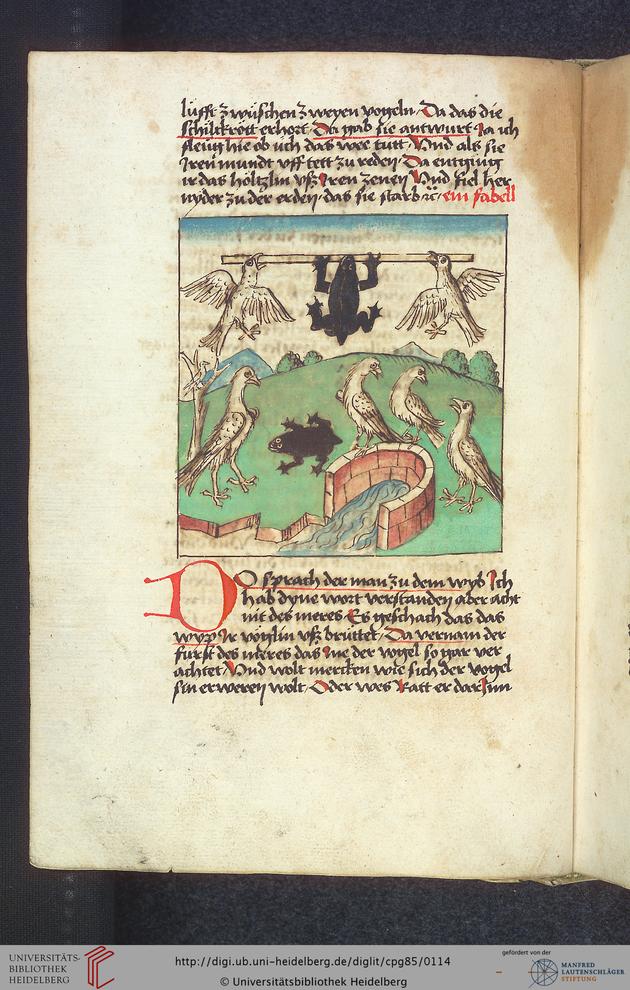 lüfft zwüschen zweyen vogeln Da das die
schiltkrott erhort Da gab sie antwurt Ja ich
fleug hie ob üch das wee tutt Vnd als sie
Jren mundt vff tett zu reden Da entging
ir das höltzlin vsz Jren zenen Vnd fiel her
nyder zu der erden das sie starb ein fabell
DO sprach der man zu dem wyb Ich
hab dyne wort verstanden aber acht
nit des meres Es geschach das das
wyp Jr vöglin vsz brüttet Da vernam der
fürst des meres das Jne der vogel so gar ver
achtet Vnd wolt mercken wie sich der vogel
sin erweren wolt Oder wes Ratt er dar Jnn
UNIVERSITÄTS-
BIBLIOTHEK
HEIDELBERG
http://digi.ub.uni-heidelberg.de/diglit/cpg85/0114
© Universitätsbibliothek Heidelberg
gefördert von der
MANFRED
LAUTENSCHLÄGER
STIFTUNG